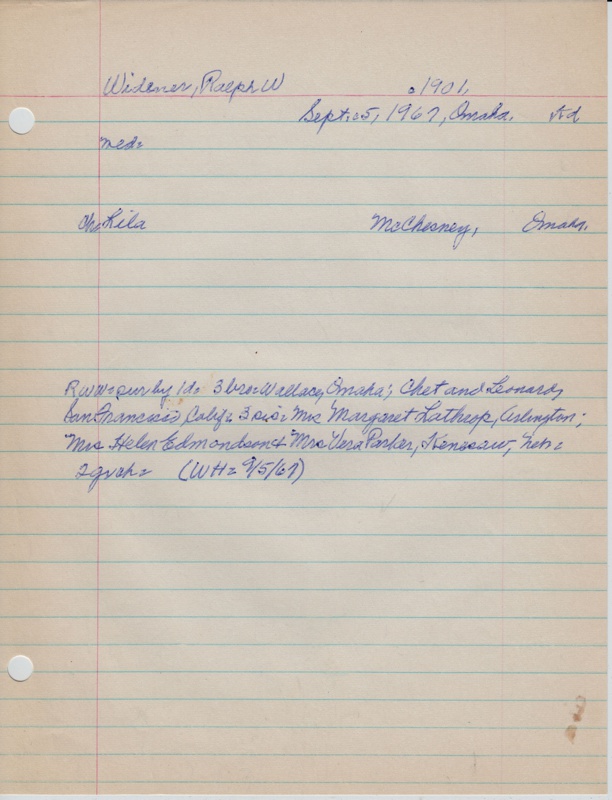 Widener, Ralph W c1901,
Sept. 5, 1967, Omaha.
med:
Ch: Rila McChesney, Omaha.
RWW: sur by 1d: 3 bro: Wallace, Omaha; Chet and Leonard,
San Francisco, Calif: 3 sis: Mrs Margaret Lathrop, Arlington;
Mrs Helen Edmondson & Mrs Vera Parker, Kenesaw, Neb:
2 grch: (WH: 9/5/67)